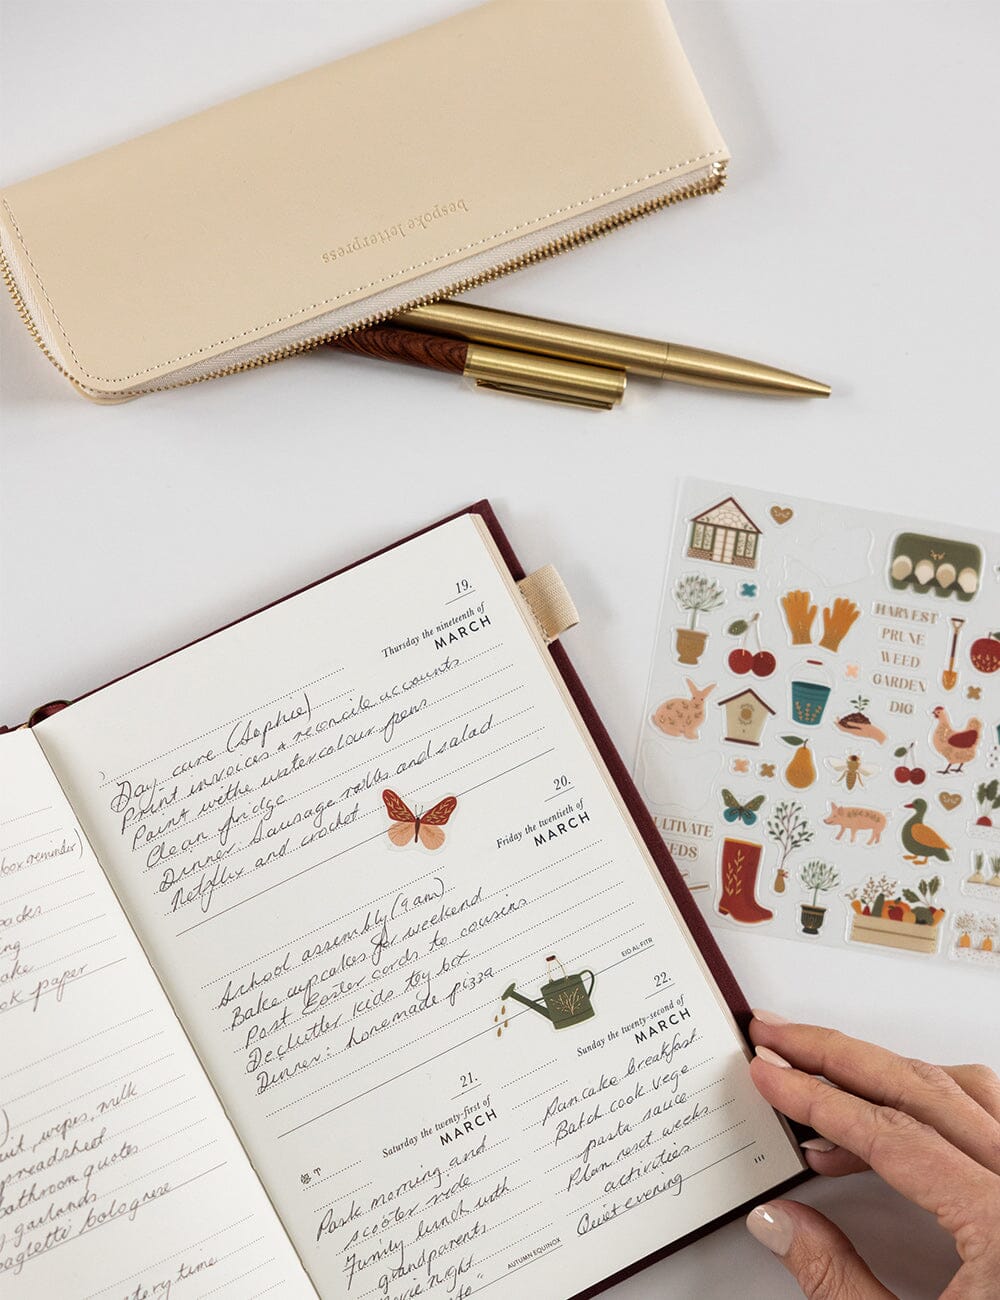 bespoke letterpress
box reminder)
ok paper
wipes, milk
spreadsheet
bathroom quotes
garlands
bolognese
time
19.
Thursday the nineteenth of
MARCH
Day care (Sophie)
Print invoices & reconcile accounts
Paint with watercolour pens
Clean fridge
Dinner: Sausage rolls and salad
Netflix and crochet
20.
Friday the twentieth of
MARCH
School assembly (9am)
Bake cupcakes for weekend
Post Easter cards to cousins
Declutter kids toy box
Dinner: homemade pizza
EID AL-FITR
21.
Saturday the twenty-first of
MARCH
T
Park morning and
scooter ride
Family lunch with
grandparents
movie night
AUTUMN EQUINOX
22.
Sunday the twenty-second of
MARCH
Pancake breakfast
Batch cook vege
pasta sauce
Plan next weeks
activities
Quiet evening
HARVEST
PRUNE
WEED
GARDEN
DIG
CULTIVATE